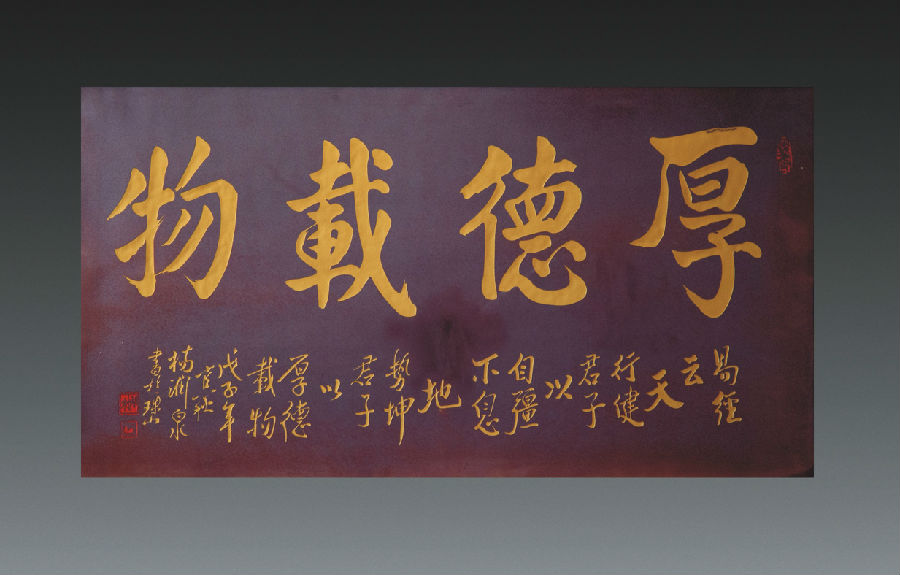 厚德載物
易經
云天
行健
君子
以
自彊
不息
地
勢坤
君子
以
厚德
載物
戊子年
楊
泉
書於